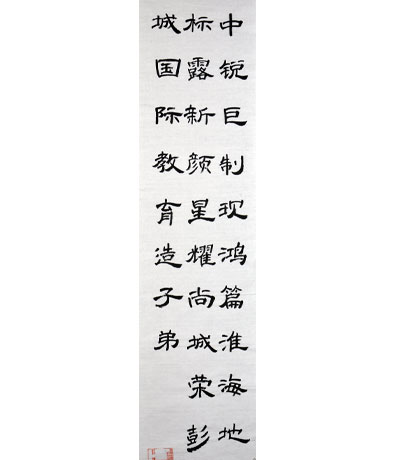 中锐巨制现鸿篇淮海地
标露新颜星耀尚城荣彭
城国际教育造子弟